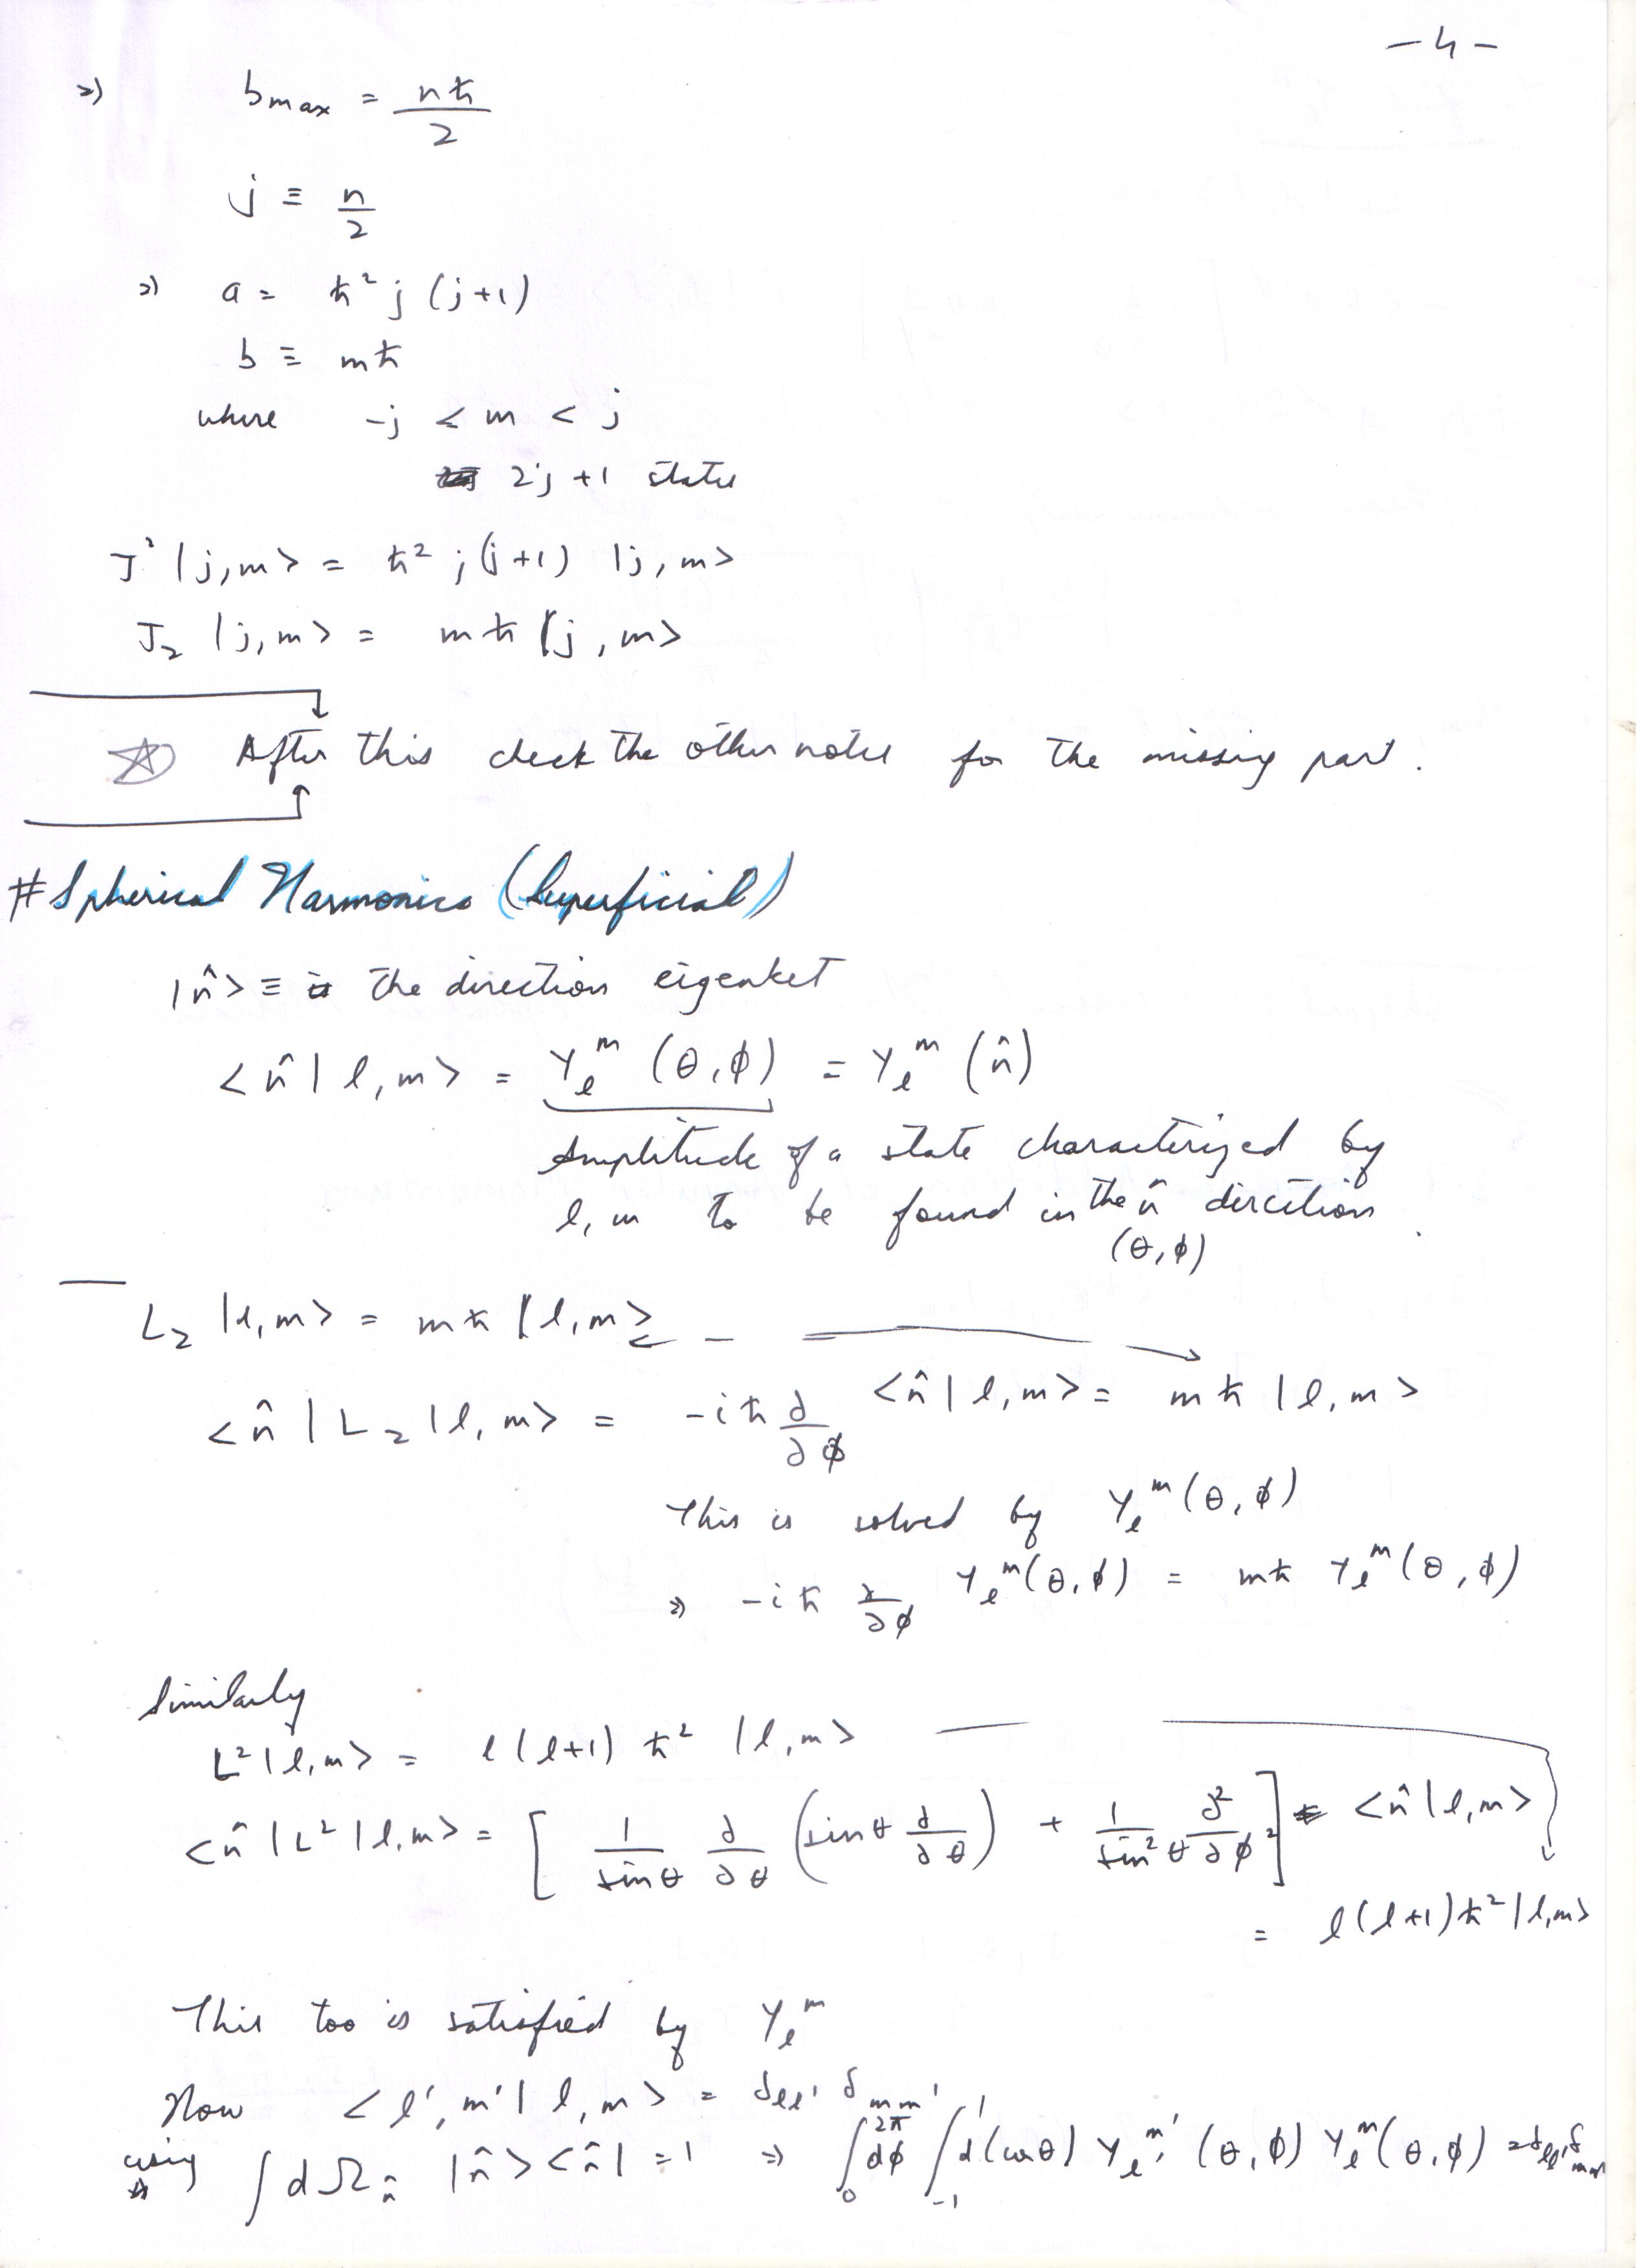 -4-
⇒) b_max = nħ/2
j ≡ n/2
⇒) a = ħ² j (j+1)
b ≡ mħ
where -j < m < j
2j+1 states
J² |j,m> = ħ² j(j+1) |j,m>
J_z |j,m> = mħ |j,m>
After this check the other notes for the missing part.
# Spherical Harmonics (Superficial)
|n̂> ≡ the direction eigenket
<n̂|l,m> = Y_l^m (θ,ϕ) = Y_l^m (n̂)
Amplitude of a state characterized by
l,m to be found in the n̂ direction.
(θ,ϕ)
L_z |l,m> = mħ |l,m>
<n̂|L_z|l,m> = -iħ ∂/∂ϕ <n̂|l,m> = mħ |l,m>
This is solved by Y_l^m(θ,ϕ)
⇒ -iħ ∂/∂ϕ Y_l^m(θ,ϕ) = mħ Y_l^m(θ,ϕ)
Similarly
L²|l,m> = l(l+1) ħ² |l,m>
<n̂|L²|l,m> = [ 1/sinθ ∂/∂θ (sinθ ∂/∂θ) + 1/sin²θ ∂²/∂ϕ² ] <n̂|l,m>
= l(l+1)ħ²|l,m>
This too is satisfied by Y_l^m
Now <l',m'|l,m> = δ_ll' δ_mm'
using ∫dΩ_n̂ |n̂><n̂| = 1 ⇒ ∫_0^2π dϕ ∫_-1^1 d(cosθ) Y_l'^m' (θ,ϕ) Y_l^m(θ,ϕ) = δ_ll' δ_mm'